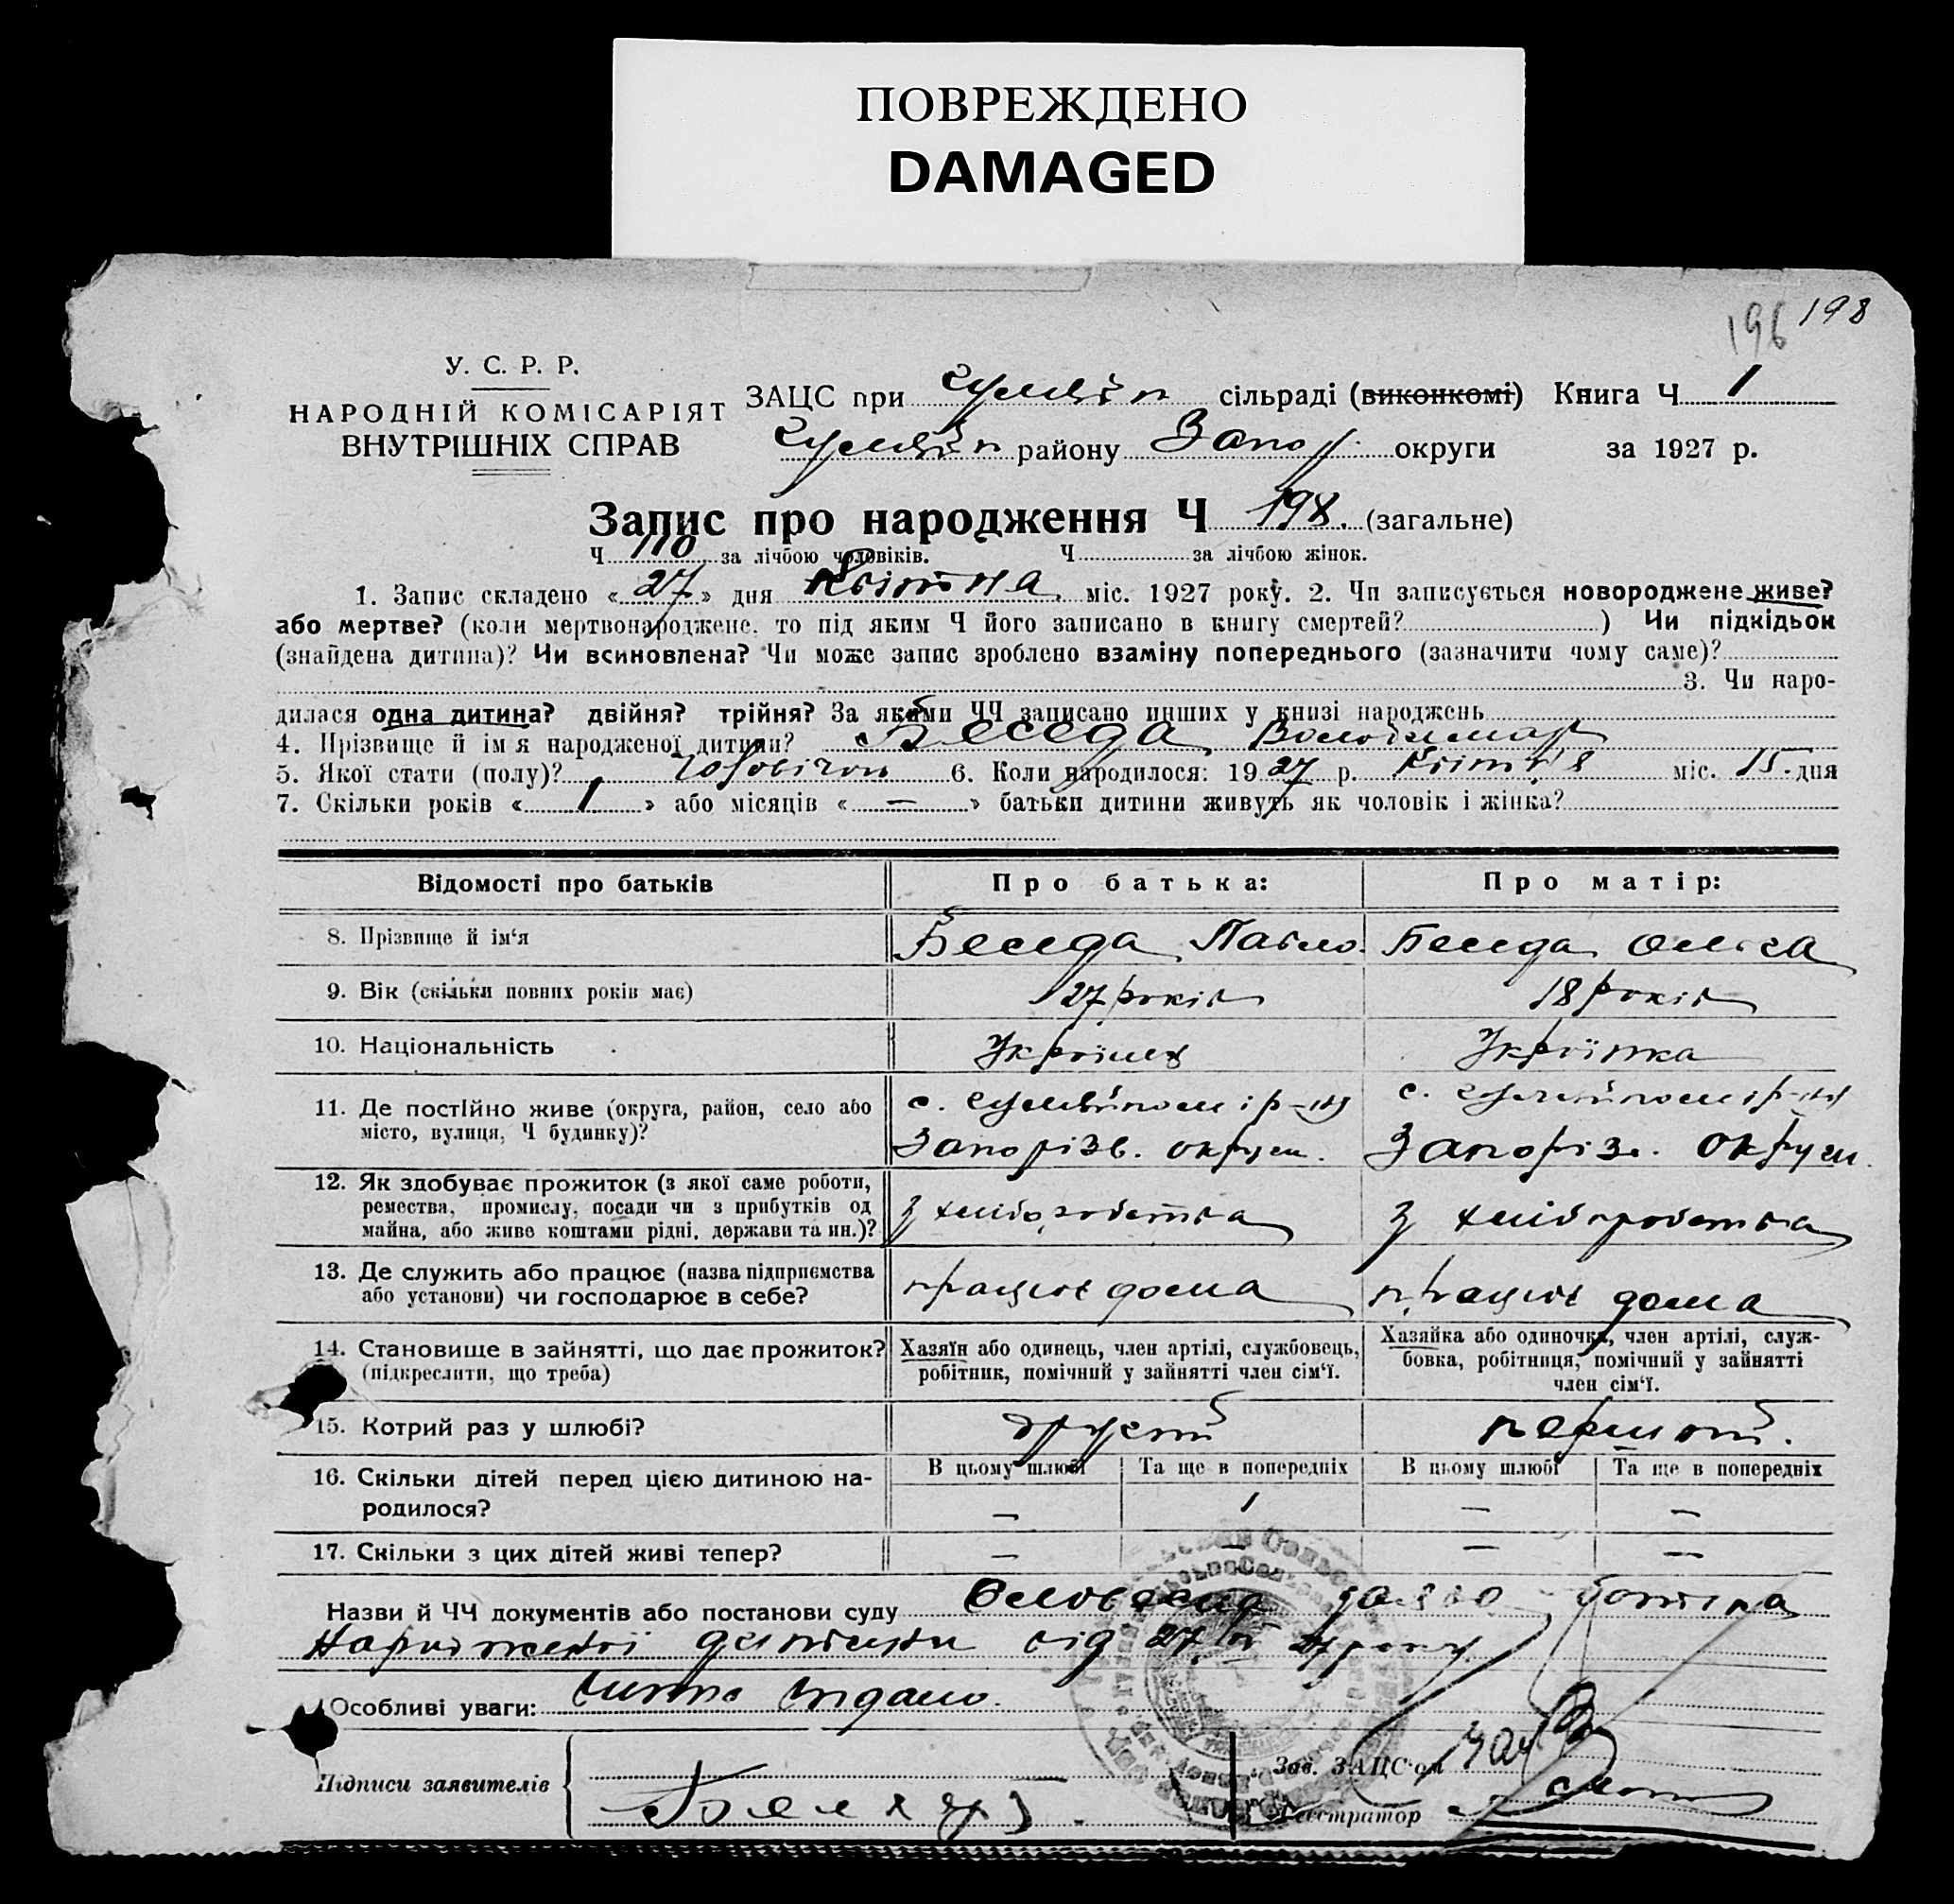 ПОВРЕЖДЕНО
DAMAGED
196 198
У. С. Р. Р.
НАРОДНІЙ КОМІСАРІЯТ
ВНУТРІШНІХ СПРАВ
ЗАЦС при сільраді (виконкомі) Книга Ч 1
району Запор. округи за 1927 р.
Запис про народження Ч 198. (загальне)
Ч 110 за лічбою чоловіків. Ч за лічбою жінок.
1. Запис складено « 27 » дня Квітня міс. 1927 року. 2. Чи записується новороджене живе?
або мертве? (коли мертвонароджене, то під яким Ч його записано в книгу смертей? ) Чи підкідьок
(знайдена дитина)? Чи всиновлена? Чи може запис зроблено взаміну попереднього (зазначити чому саме)?
3. Чи наро-
дилася одна дитина? двійня? трійня? За якими ЧЧ записано инших у книзі народжень
4. Прізвище й ім'я народженої дитини? Беседа Володимар
5. Якої стати (полу)? 6. Коли народилося: 19 27 р. Квітня міс. 15. дня
7. Скільки років « 1 » або місяців « — » батьки дитини живуть як чоловік і жінка?
Відомості про батьків Про батька: Про матір:
8. Прізвище й ім‘я Беседа Павло Беседа
9. Вік (скільки повних років має) 27 років 18 років
10. Національність Українец Українка
11. Де постійно живе (округа, район, село або
місто, вулиця, Ч будинку)?
с. р-ну с. р-ну
Запорізь. округи. Запоріз. округи.
12. Як здобуває прожиток (з якої саме роботи,
ремества, промислу, посади чи з прибутків од
майна, або живе коштами рідні, держави та ин.)?
з хліборобства з хліборобства
13. Де служить або працює (назва підприємства
або установи) чи господарює в себе?
працює дома працює дома
14. Становище в зайнятті, що дає прожиток?
(підкреслити, що треба)
Хазяїн або одинець, член артілі, службовець,
робітник, помічний у зайнятті член сім‘ї.
Хазяйка або одиночка, член артілі, служ-
бовка, робітниця, помічний у зайнятті
член сім‘ї.
15. Котрий раз у шлюбі? другий перший.
16. Скільки дітей перед цією дитиною на-
родилося?
В цьому шлюбі Та ще в попередніх В цьому шлюбі Та ще в попередніх
— 1 — —
17. Скільки з цих дітей живі тепер? — — — —
Назви й ЧЧ документів або постанови суду заява батька
дитини від 27/IV 27 року
Особливі уваги: видано.
Підписи заявителів
Зав. ЗАЦС'ом
Реєстратор